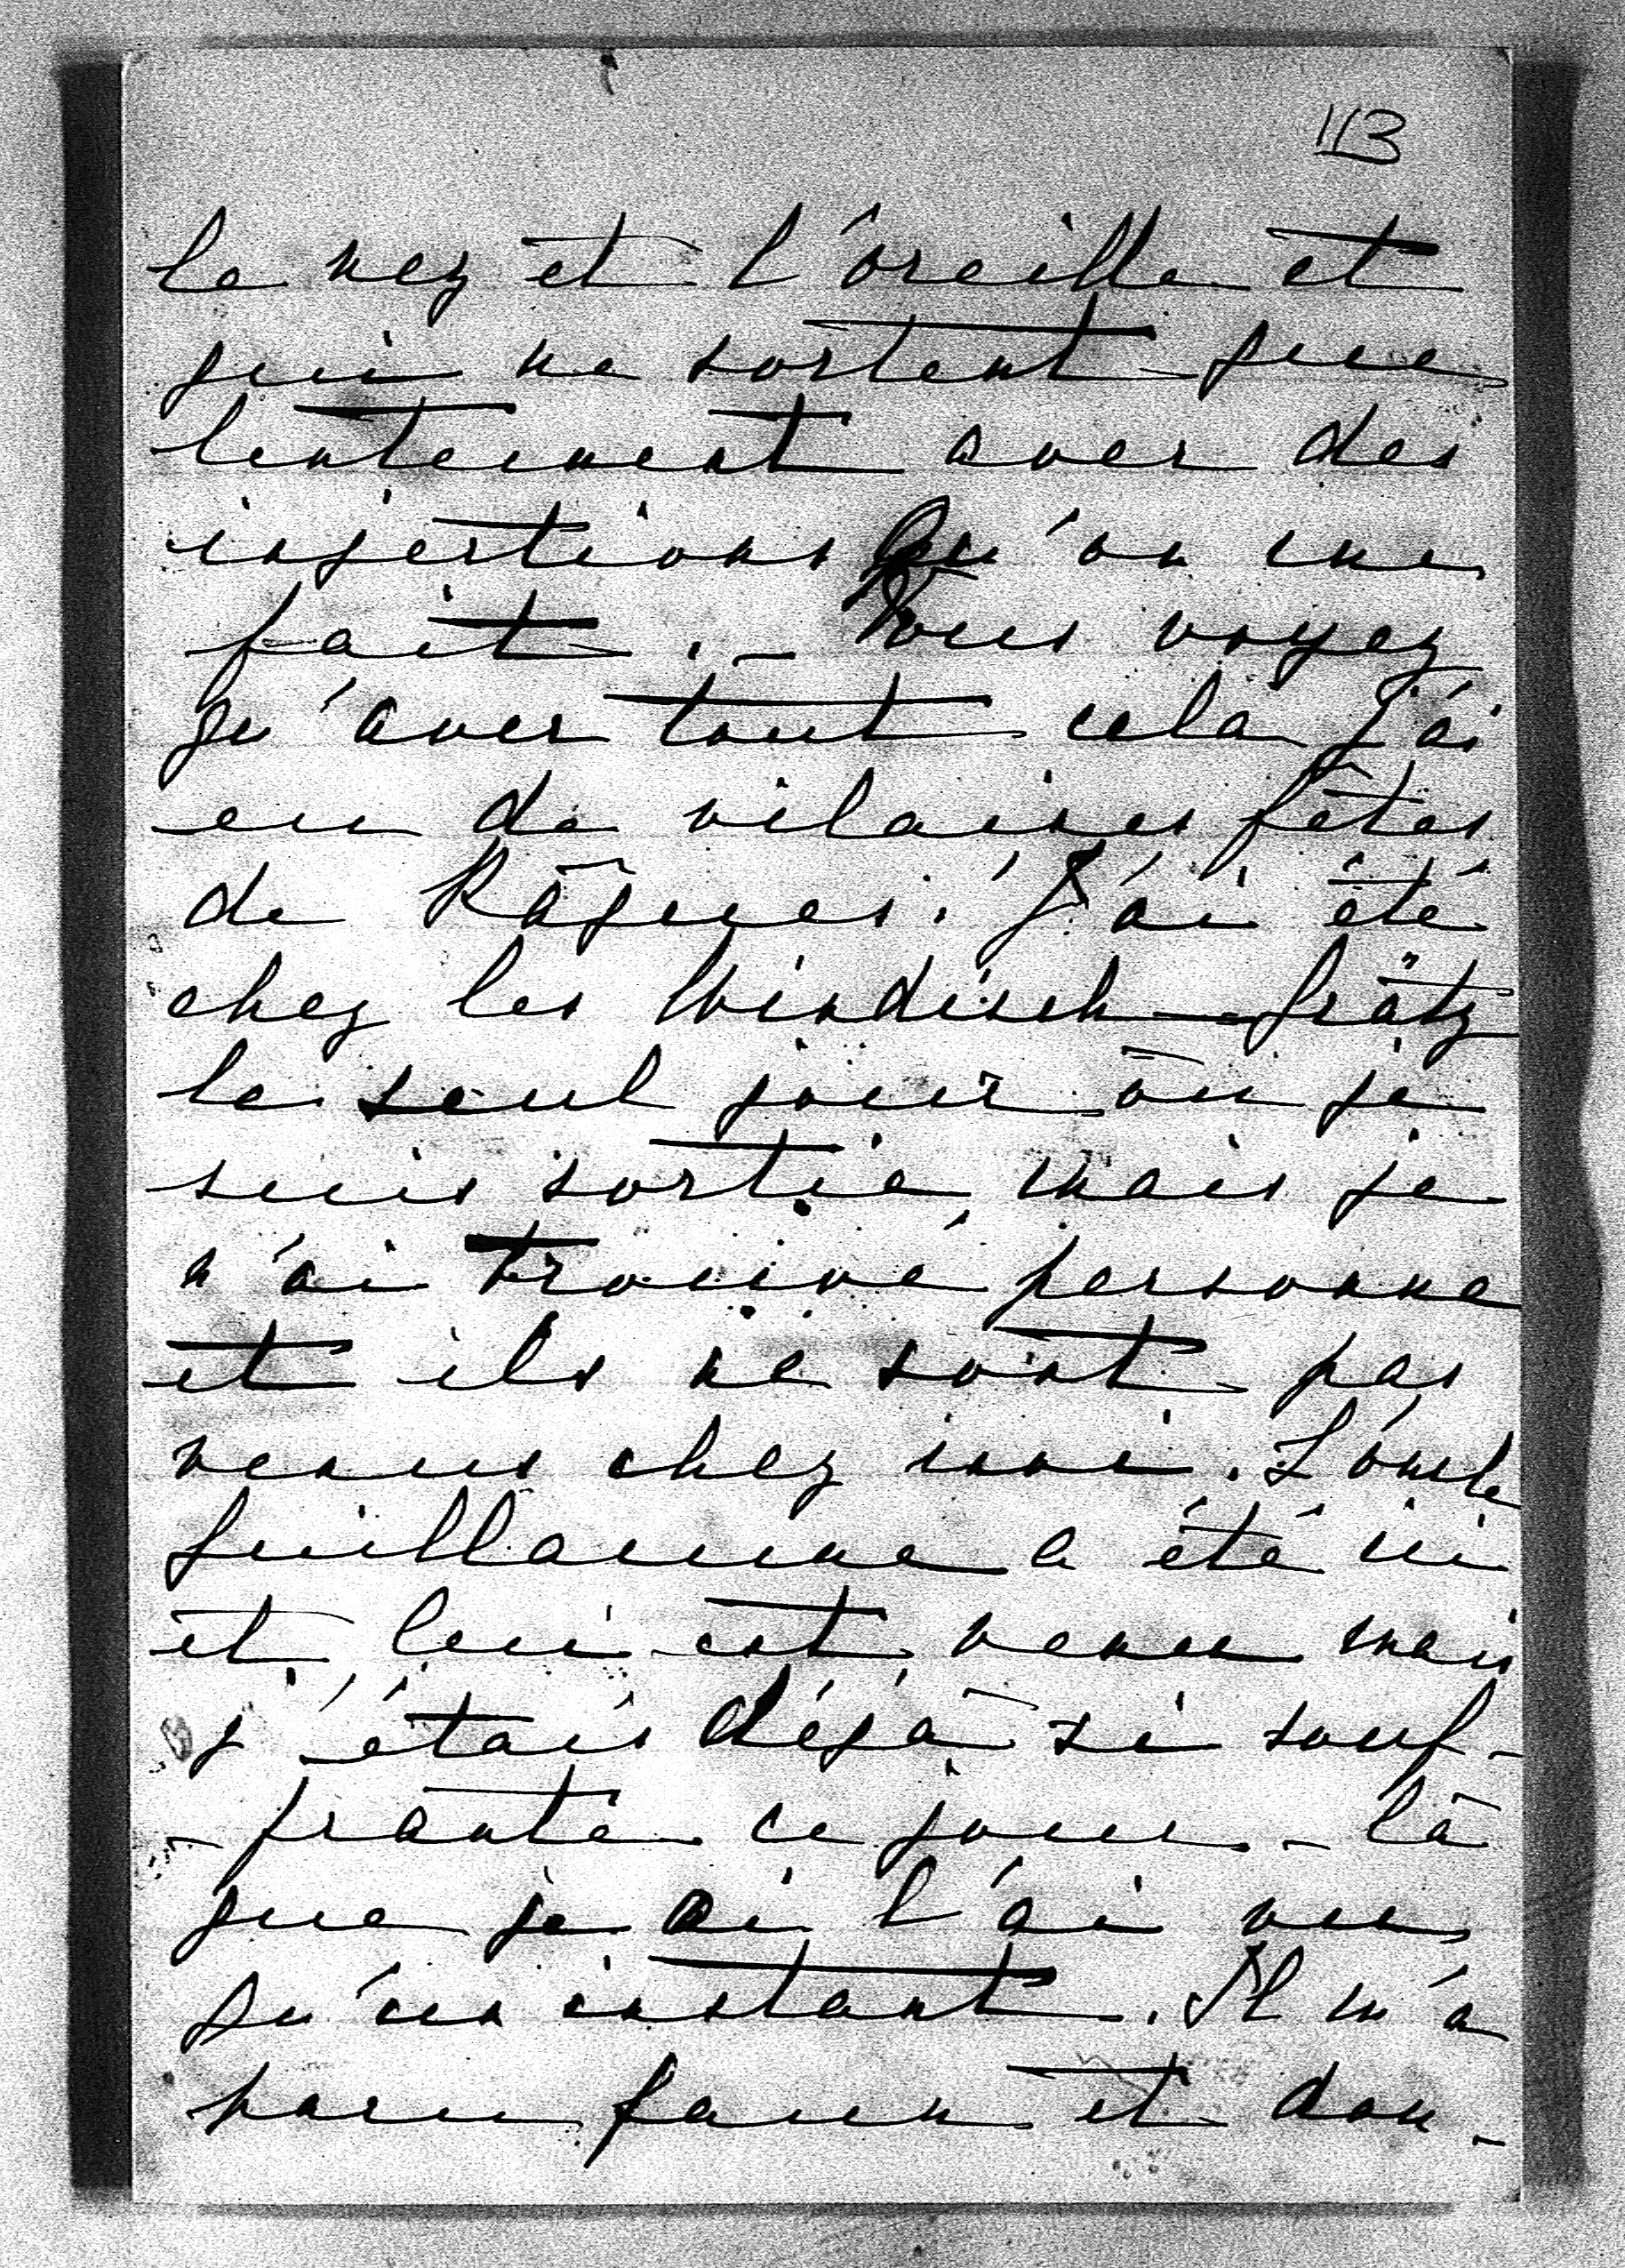 113
le nez et l'oreille et
qui ne sortent que
lentement avec des
injections qu'on me
fait. – Vous voyez
qu'avec tout cela j'ai
eu de vilaines fêtes
de Pâques. J'ai été
chez les Windisch-Grätz
le seul jour où je
suis sortie, mais je
n'ai trouvé personne
et ils ne sont pas
venus chez moi. L'oncle
Guillaume a été ici
et lui est venu mais
j'étais déjà si souf-
-frante ce jour-là
que je ai l'ai vu
qu'un instant. Il m'a
paru faux et dou-